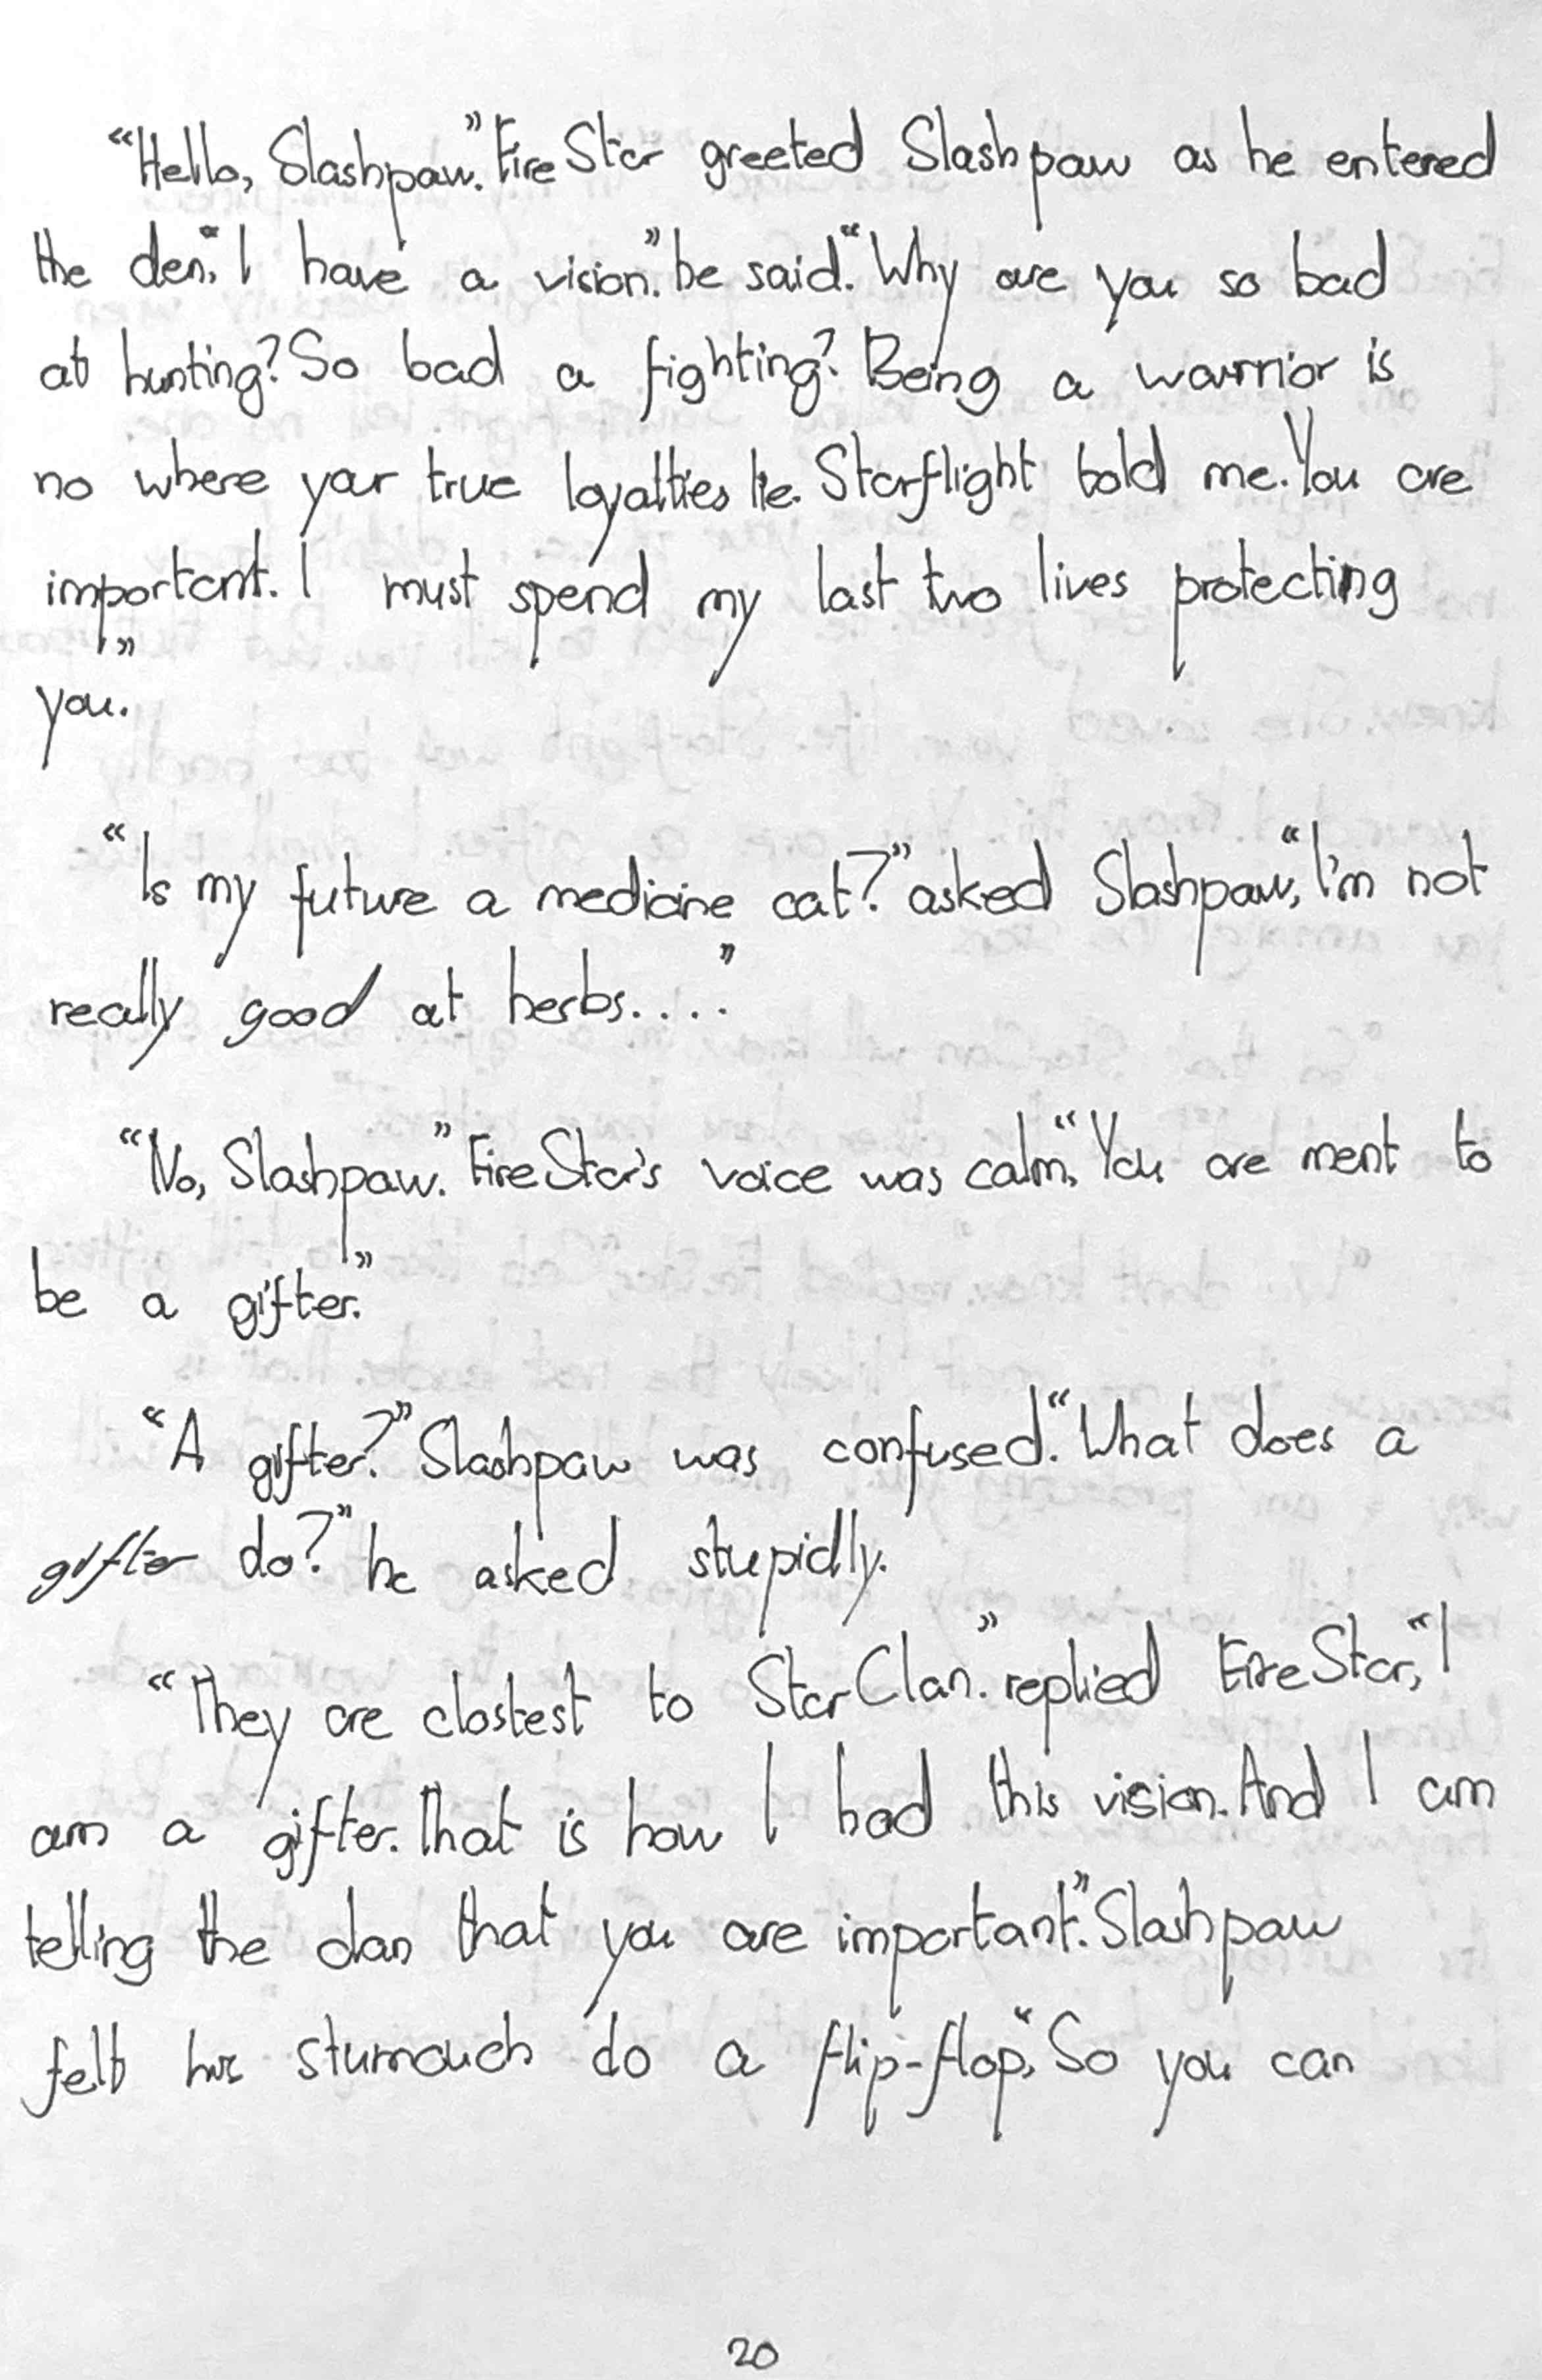 “Hello, Slashpaw.” FireStar greeted Slashpaw as he entered
the den. “I have a vision.” he said. “Why are you so bad
at hunting? So bad a fighting? Being a warrior is
no where your true loyalties lie. Starflight told me. You are
important. I must spend my last two lives protecting
you.”
“Is my future a medicine cat?” asked Slashpaw, “I'm not
really good at herbs....”
“No, Slashpaw.” FireStar's voice was calm. “You are ment to
be a gifter.”
“A gifter?” Slashpaw was confused. “What does a
gifter do?” he asked stupidly.
“They are clostest to StarClan.” replied FireStar, “I
am a gifter. That is how I had this vision. And I am
telling the clan that you are important.” Slashpaw
felt his stumouch do a flip-flop. “So you can
20